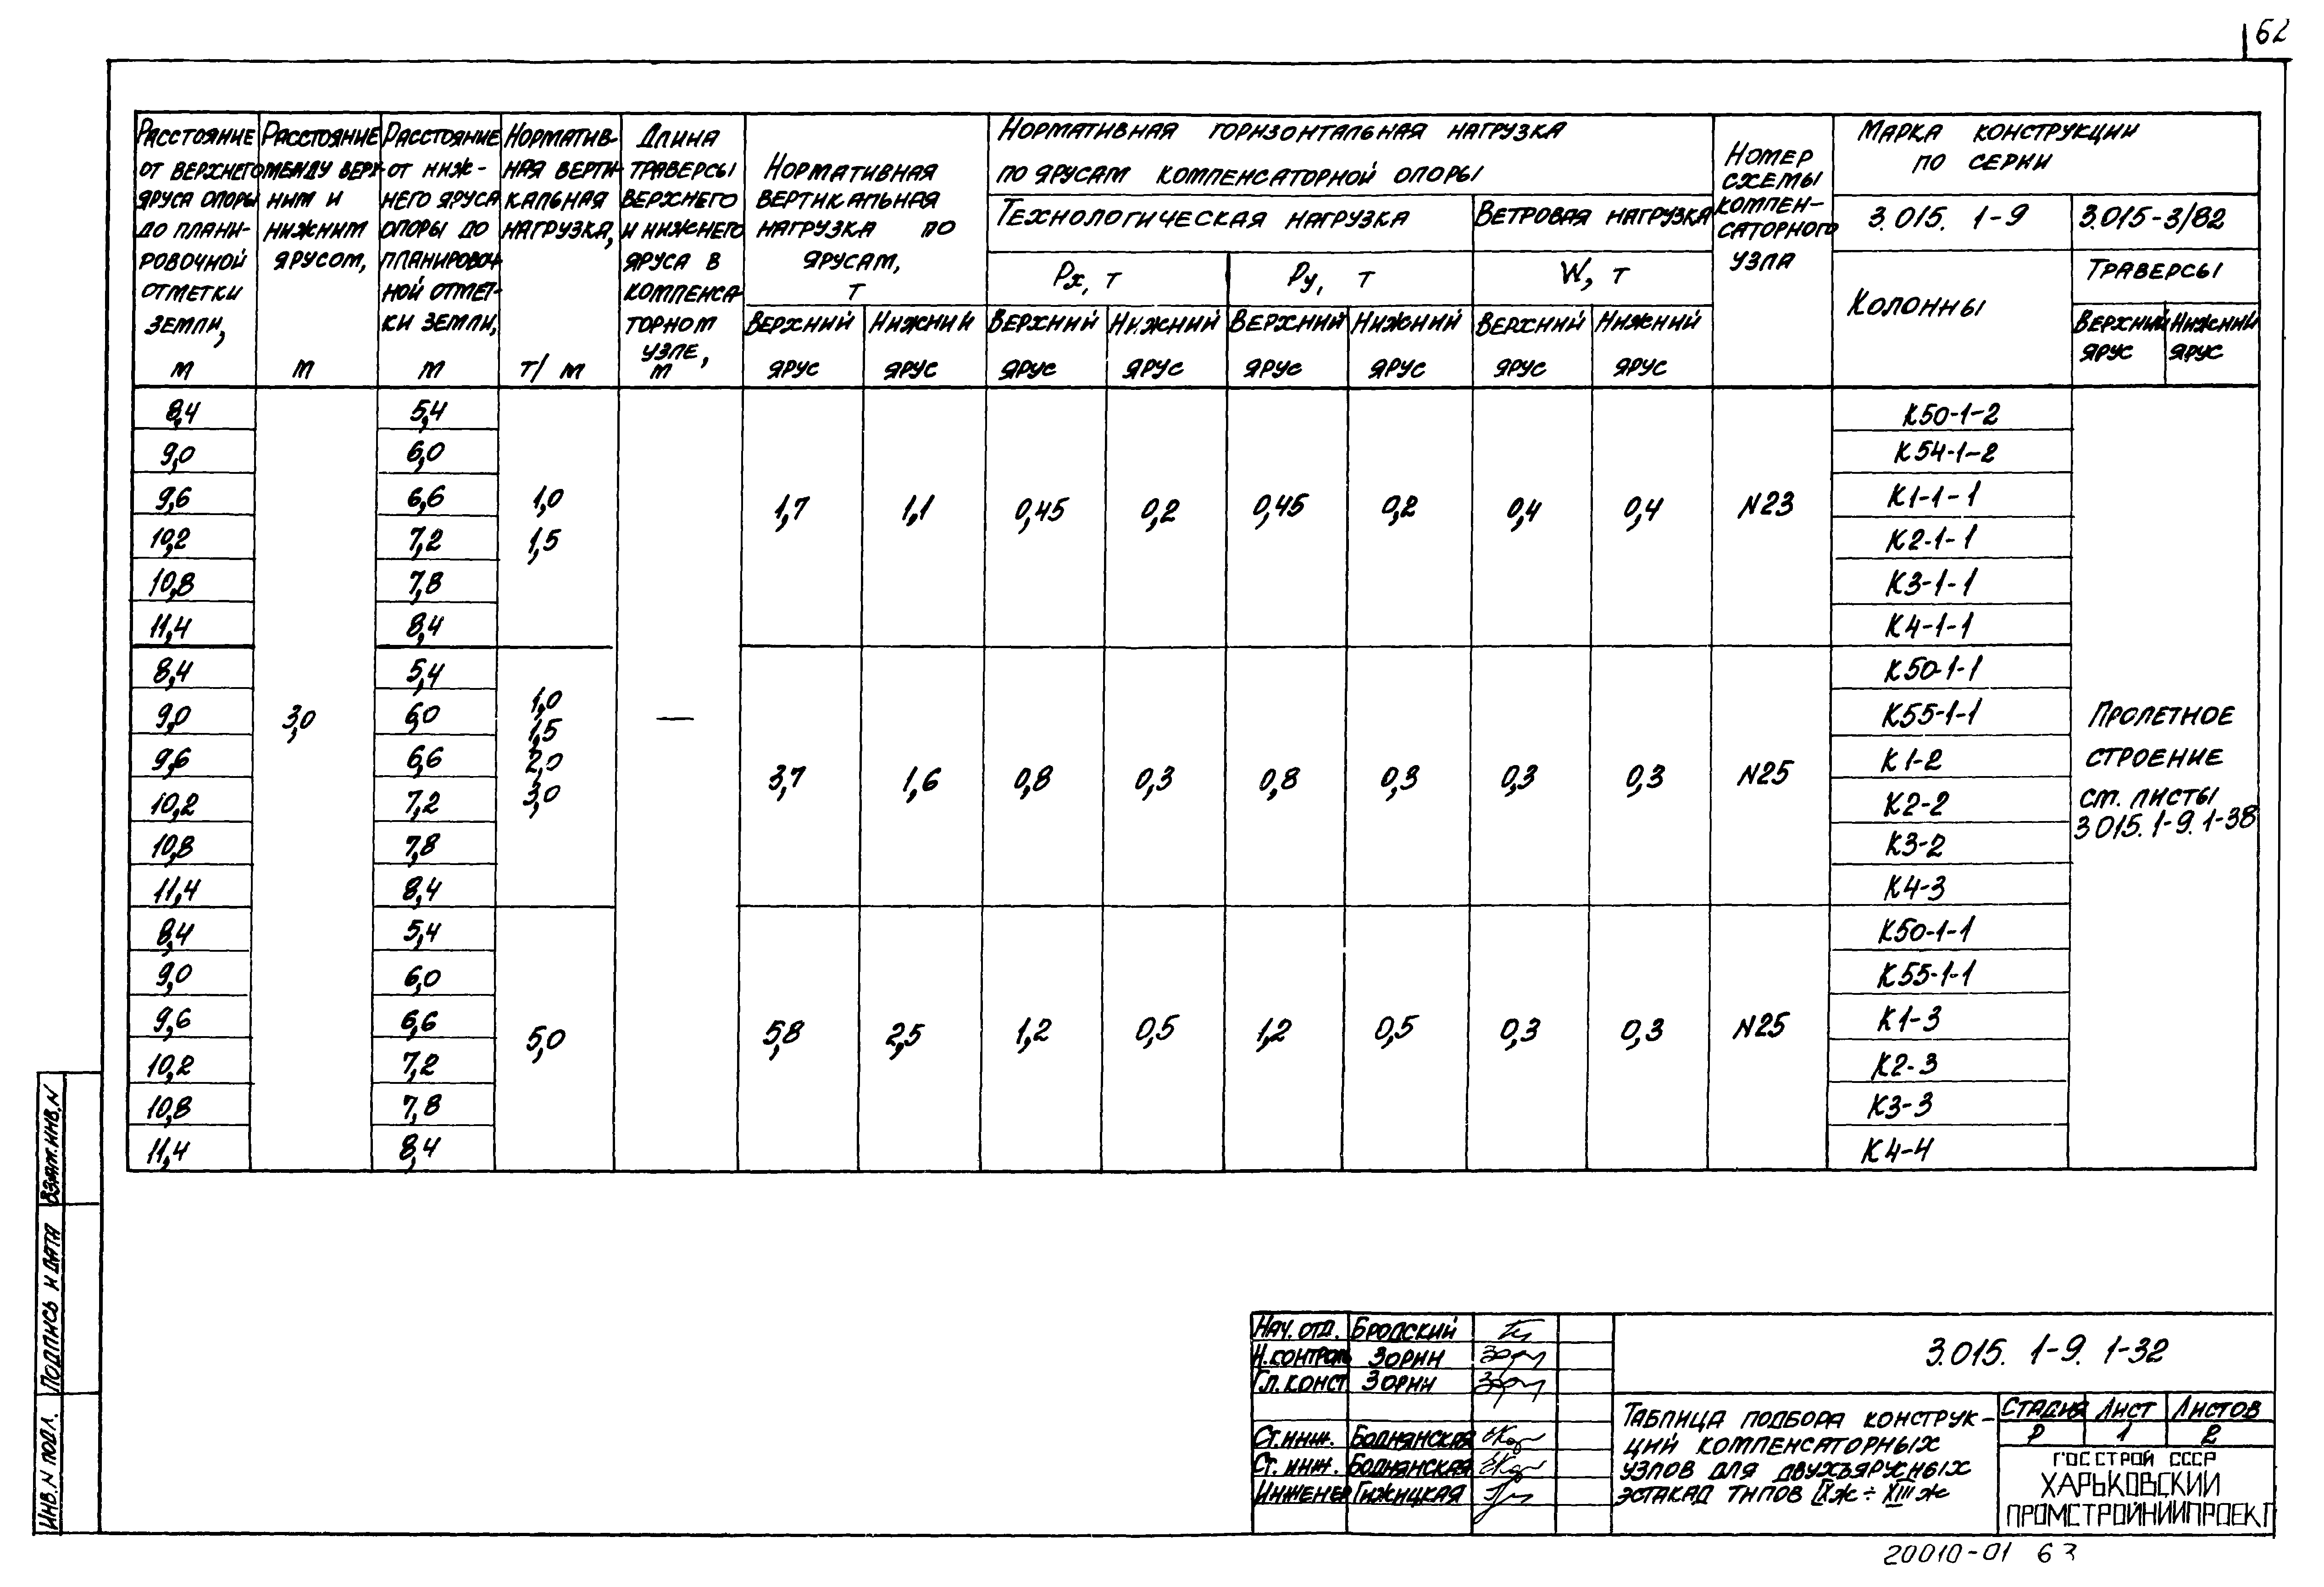 62
Расстояние от верхнего яруса опоры до планировочной отметки земли, м
Расстояние между верхним и нижним ярусом, м
Расстояние от нижнего яруса опоры до планировочной отметки земли, м
Нормативная вертикальная нагрузка, т/м
Длина траверсы верхнего и нижнего яруса в компенсаторном узле, м
Нормативная вертикальная нагрузка по ярусам, т
Верхний ярус
Нижний ярус
Нормативная горизонтальная нагрузка
по ярусам компенсаторной опоры
Технологическая нагрузка
Ветровая нагрузка
Px, т
Py, т
W, т
Верхний ярус
Нижний ярус
Верхний ярус
Нижний ярус
Верхний ярус
Нижний ярус
Номер схемы компенсаторного узла
Марка конструкции
по серии
3.015. 1-9
3.015-3/82
Колонны
Траверсы
Верхний ярус
Нижний ярус
8,4 5,4 К50-1-2
9,0 6,0 К54-1-2
9,6 6,6 1,0 К1-1-1
1,7 1,1 0,45 0,2 0,45 0,2 0,4 0,4 N23
10,2 7,2 1,5 К2-1-1
10,8 7,8 К3-1-1
11,4 8,4 К4-1-1
8,4 5,4 К50-1-1
1,0
9,0 3,0 6,0 1,5 — К55-1-1 Пролетное
9,6 6,6 2,0 К1-2 строение
3,7 1,6 0,8 0,3 0,8 0,3 0,3 0,3 N25
10,2 7,2 3,0 К2-2 см. листы
3.015. 1-9. 1-38
10,8 7,8 К3-2
11,4 8,4 К4-3
8,4 5,4 К50-1-1
9,0 6,0 К55-1-1
9,6 6,6 К1-3
5,0 5,8 2,5 1,2 0,5 1,2 0,5 0,3 0,3 N25
10,2 7,2 К2-3
10,8 7,8 К3-3
11,4 8,4 К4-4
Взам.инв.N
Подпись и дата
Инв.N подл.
Нач. отд. Бродский
Н.контроль Зорин
Гл.конст Зорин
Ст.инж. Боднянская
Ст. инж. Боднянская
Инженер Гижицкая
3.015. 1-9. 1-32
Таблица подбора конструк-
ций компенсаторных
узлов для двухъярусных
эстакад типов IXж÷XIIIж
Стадия Лист Листов
Р 1 2
Госстрой СССР
Харьковский
Промстройниипроект
20010-01 63